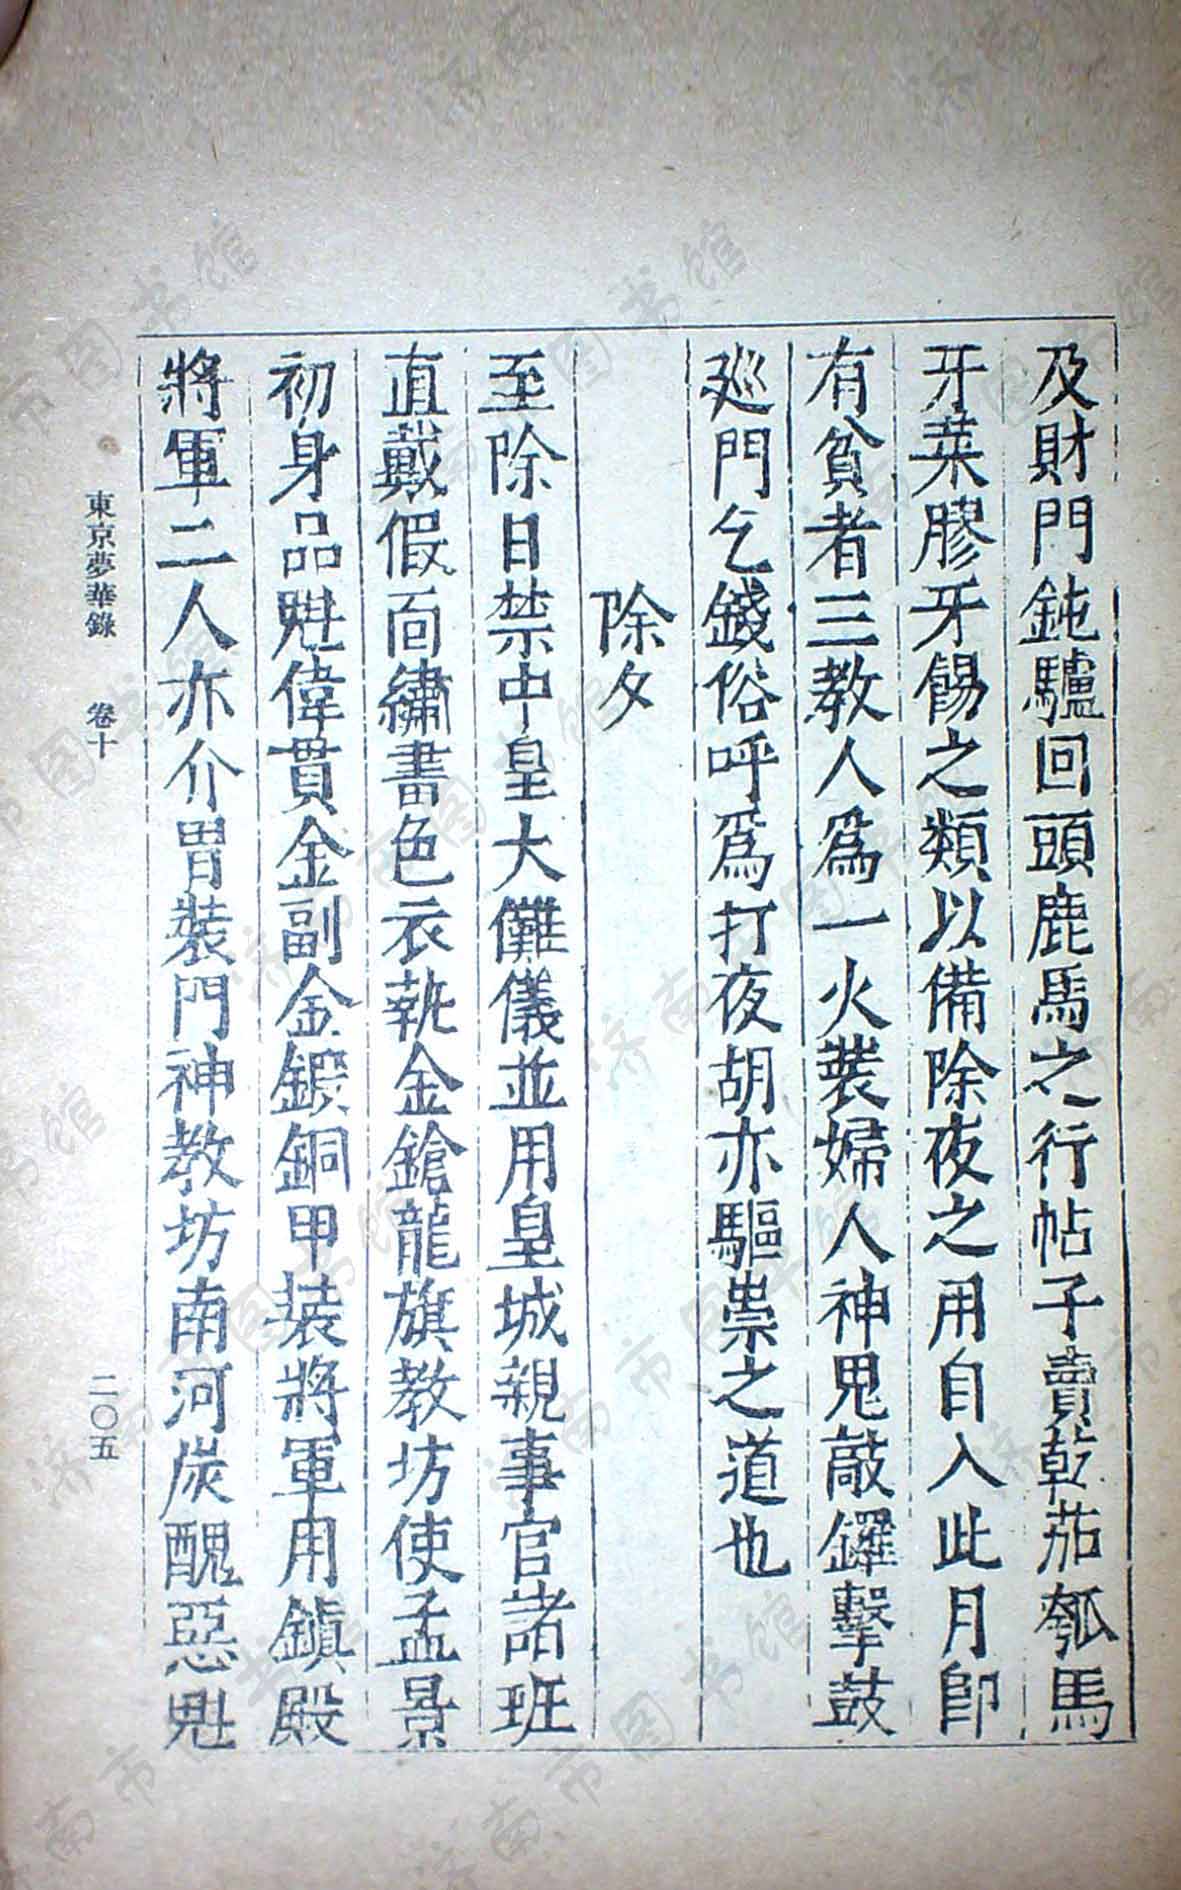 及財門鈍驢回頭鹿馬之行帖子賣乾茄瓠馬
牙菜膠牙餳之類以備除夜之用自入此月即
有貧者三教人爲一火裝婦人神鬼敲鑼擊鼓
廵門乞錢俗呼爲打夜胡亦驅祟之道也
除夕
至除日禁中皇大儺儀並用皇城親事官諸班
直戴假面繡畫色衣執金鎗龍旗教坊使孟景
初身品魁偉貫金副金鍍銅甲裝將軍用鎮殿
將軍二人亦介胄裝門神教坊南河炭醜惡魁
東京夢華錄 卷十 二〇五
济南市图书馆